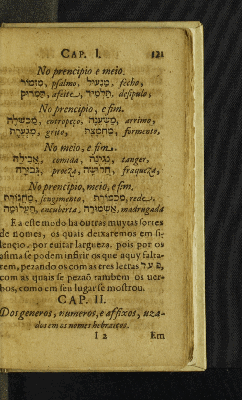 CAP. I. 121
No prencipio e meio.
מזמור, psalmo, מנעול, fecho,
afeite, תלמיד, desipulo,
No prencipio, e fim.
מכשלה, estropeço, משענה, arrimo,
מגערת, grito, מחמצת, formento,
No meio, e fim.
אכילה, comida, נגינה, tanger,
גבורה, proeza, חלושה, fraqueza,
No prencipio, meio, e fim.
מכמורת, rede,
תעלומה, encuberta, אשמורה, madrugada
E a esse modo ha outras muytas sortes
de nomes, os quais deixaremos em si-
lençio por euitar largueza. pois por os
asima se podem infirir os que aquy falta-
rem, pezando os com as tres letras פעל
com as quais se pezaõ tambem os uer-
bos, como em seu lugar se mostrou.
CAP. II.
Dos generos, numeros, e affixos, uza-
dos em os nomes hebraicos.
I 2 Em